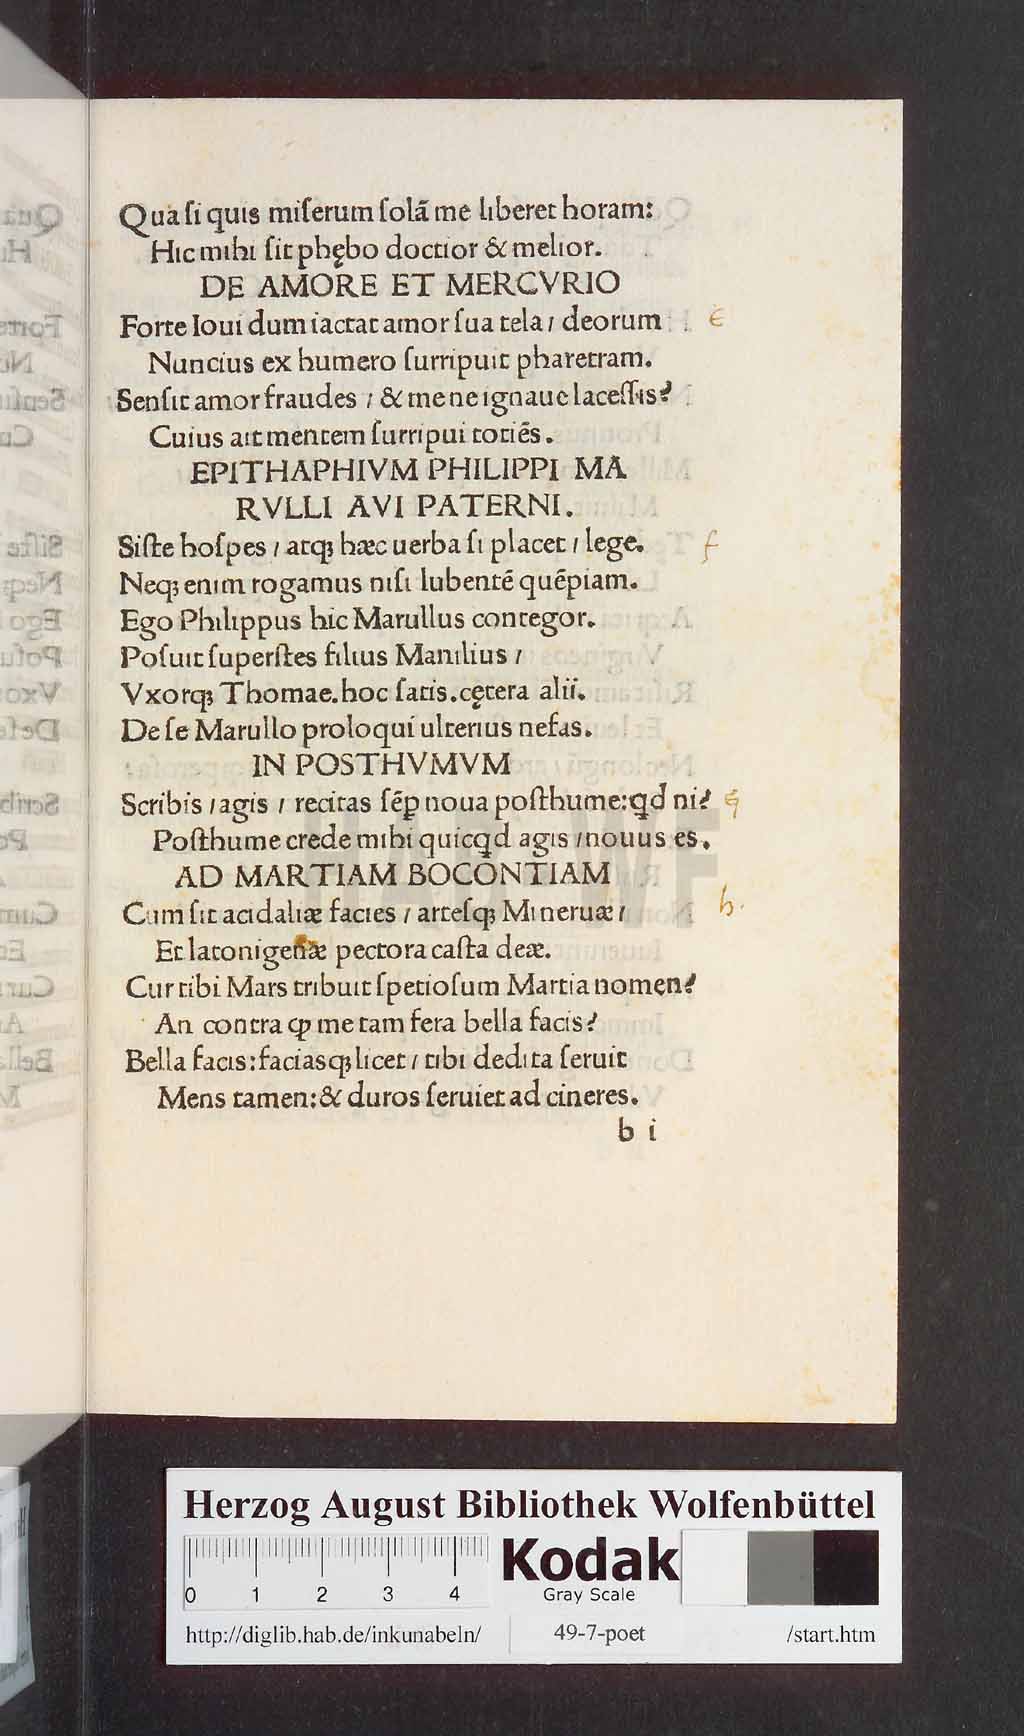 Qua ſi quis miſerum ſolā me liberet horam:
Hic mihi ſit phębo doctior & melior.
DE AMORE ET MERCVRIO
Forte Ioui dum iactat amor ſua tela / deorum
e
Nuncius ex humero ſurripuit pharetram.
Senſit amor fraudes / & me ne ignaue laceſſis?
Cuius ait mentem ſurripui totiēs.
EPITHAPHIVM PHILIPPI MA
RVLLI AVI PATERNI.
Siſte hoſpes / atqꝫ hæc uerba ſi placet / lege.
f
Neqꝫ enim rogamus niſi lubentē quēpiam.
Ego Philippus hic Marullus contegor.
Poſuit ſuperſtes filius Manilius /
Vxorqꝫ Thomae. hoc ſatis. cętera alii.
De ſe Marullo proloqui ulterius nefas.
IN POSTHVMVM
Scribis / agis / recitas ſēꝑ noua poſthume: ꝗd ni?
g
Poſthume crede mihi quicꝗd agis / nouus es.
AD MARTIAM BOCONTIAM
Cum ſit acidaliæ facies / arteſqꝫ Mineruæ /
h.
Et latonigenæ pectora caſta deæ.
Cur tibi Mars tribuit ſpetioſum Martia nomen?
An contra ꝙ me tam fera bella facis?
Bella facis: faciasqꝫ licet / tibi dedita ſeruit
Mens tamen: & duros ſeruiet ad cineres.
b i
Herzog August Bibliothek Wolfenbüttel
0 1 2 3 4
Kodak
Gray Scale
http://diglib.hab.de/inkunabeln/ 49-7-poet /start.htm